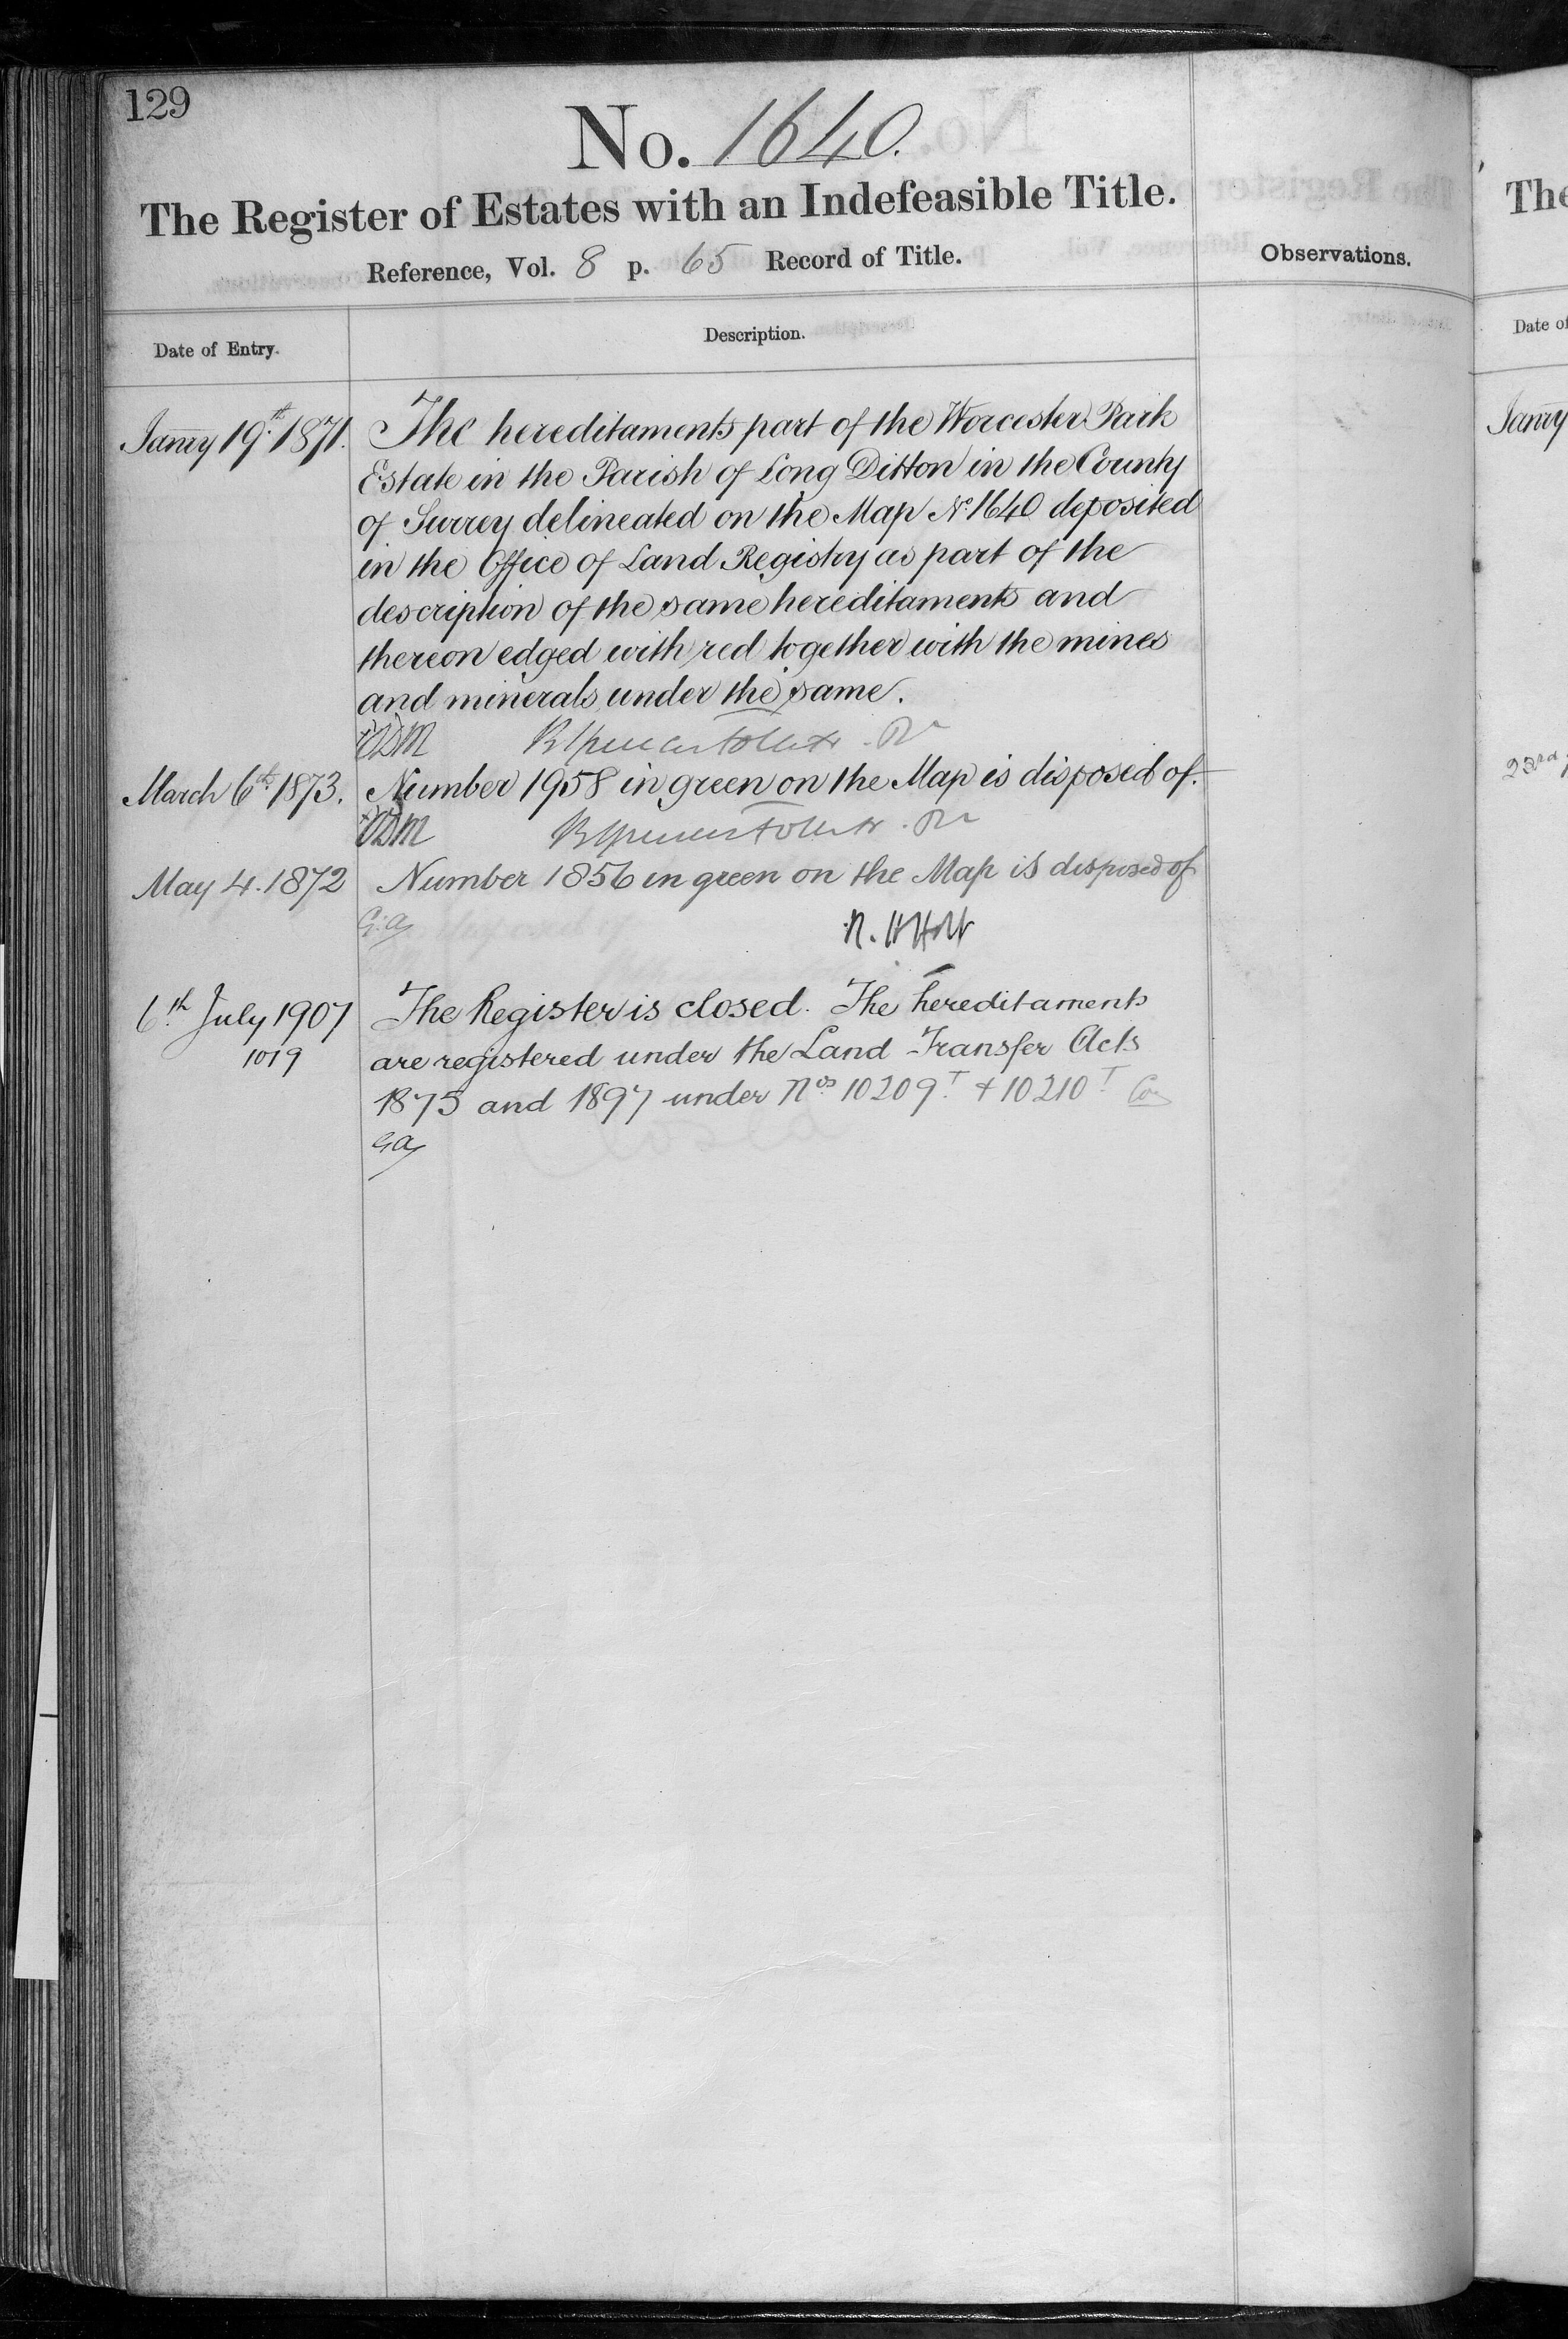 129
No. 1640.
The Register of Estates with an Indefeasible Title.
Reference, Vol. 8 p. 65 Record of Title.
Observations.
Date of Entry.
Description.
Janry 19th 1871.
The hereditaments part of the Worcester Park
Estate in the Parish of Long Ditton in the County
of Surrey delineated on the Map No. 1640 deposited
in the Office of Land Registry as part of the
description of the same hereditaments and
thereon edged with red together with the mines
and minerals under the same.
March 6th 1873.
Number 1958 in green on the Map is disposed of.
May 4. 1872
Number 1856 in green on the Map is disposed of
G.a
R. H Holt
6th July 1907
1019
The Register is closed. The hereditaments
are registered under the Land Transfer Acts
1875 and 1897 under Nos. 10209T. & 10210T.
Ga
The
Date of
Janry
23rd